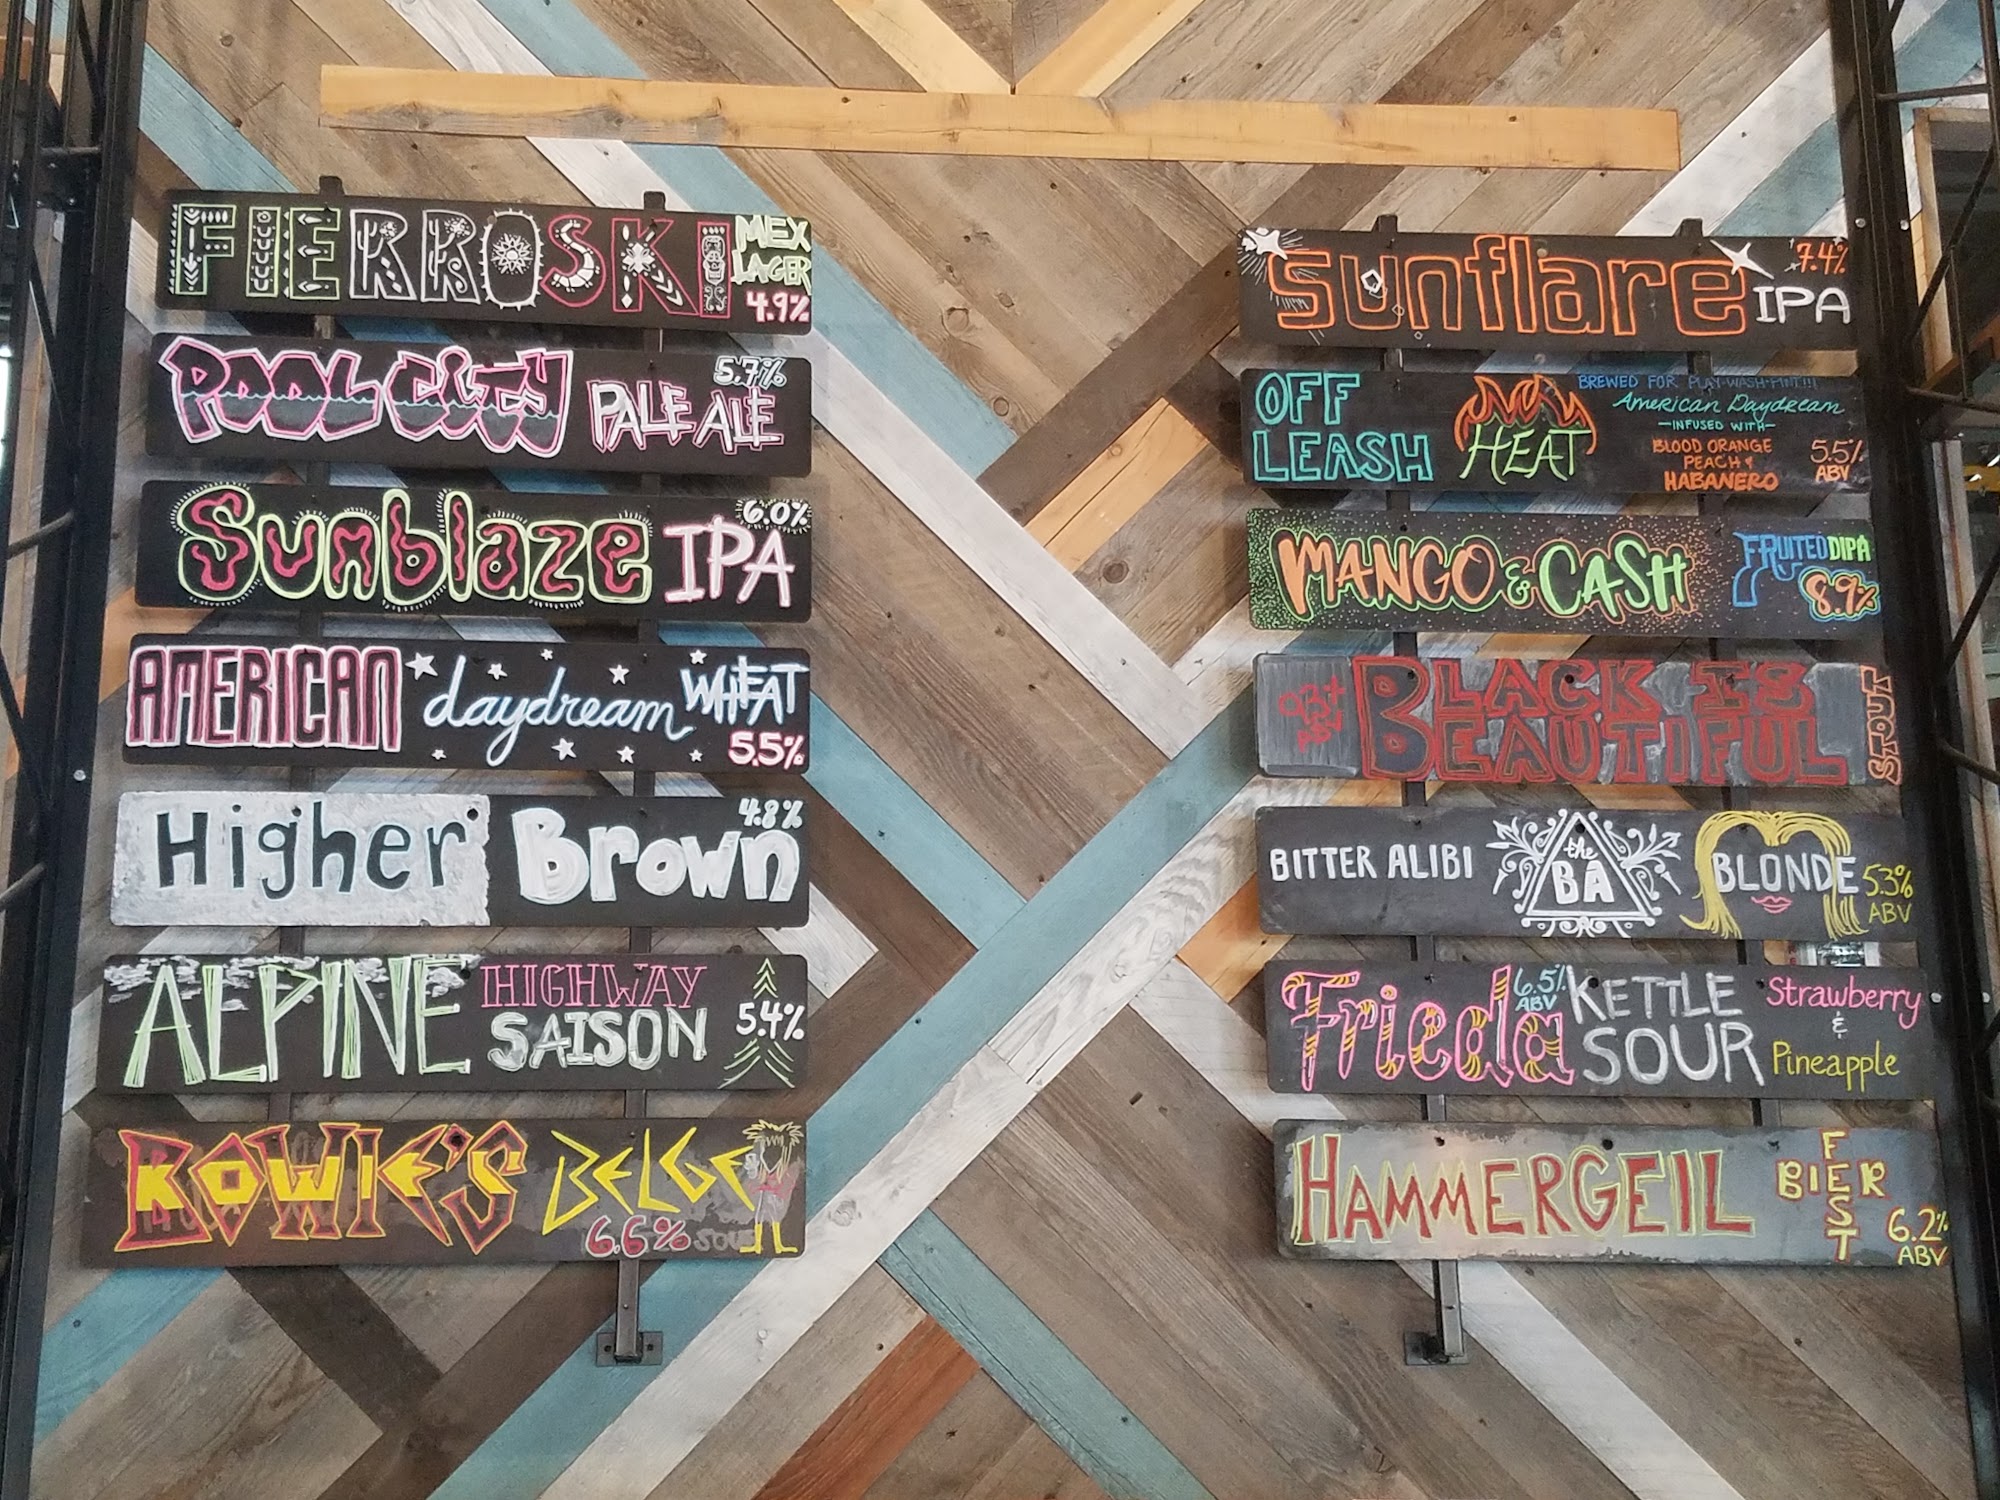 FIERROSKI MEX
LAGER
4.9%
POOL CITY PALE ALE 5.7%
Sunblaze IPA 6.0%
AMERICAN daydream WHEAT
5.5%
Higher Brown 4.8%
ALPINE HIGHWAY
SAISON 5.4%
BOWIE'S BELGE
6.6%
sunflare IPA 7.4%
OFF
LEASH
HEAT
BREWED FOR PLAY·WASH·PINT!!!
American Daydream
—INFUSED WITH—
BLOOD ORANGE
PEACH &
HABANERO
5.5%
ABV
MANGO & CASH FRUITED DIPA
8.9%
BLACK IS
BEAUTIFUL
STOUT
BITTER ALIBI the
BA
BLONDE 5.3%
ABV
Frieda 6.5%
ABV
KETTLE
SOUR
Strawberry
&
Pineapple
HAMMERGEIL FEST
BIER
6.2%
ABV